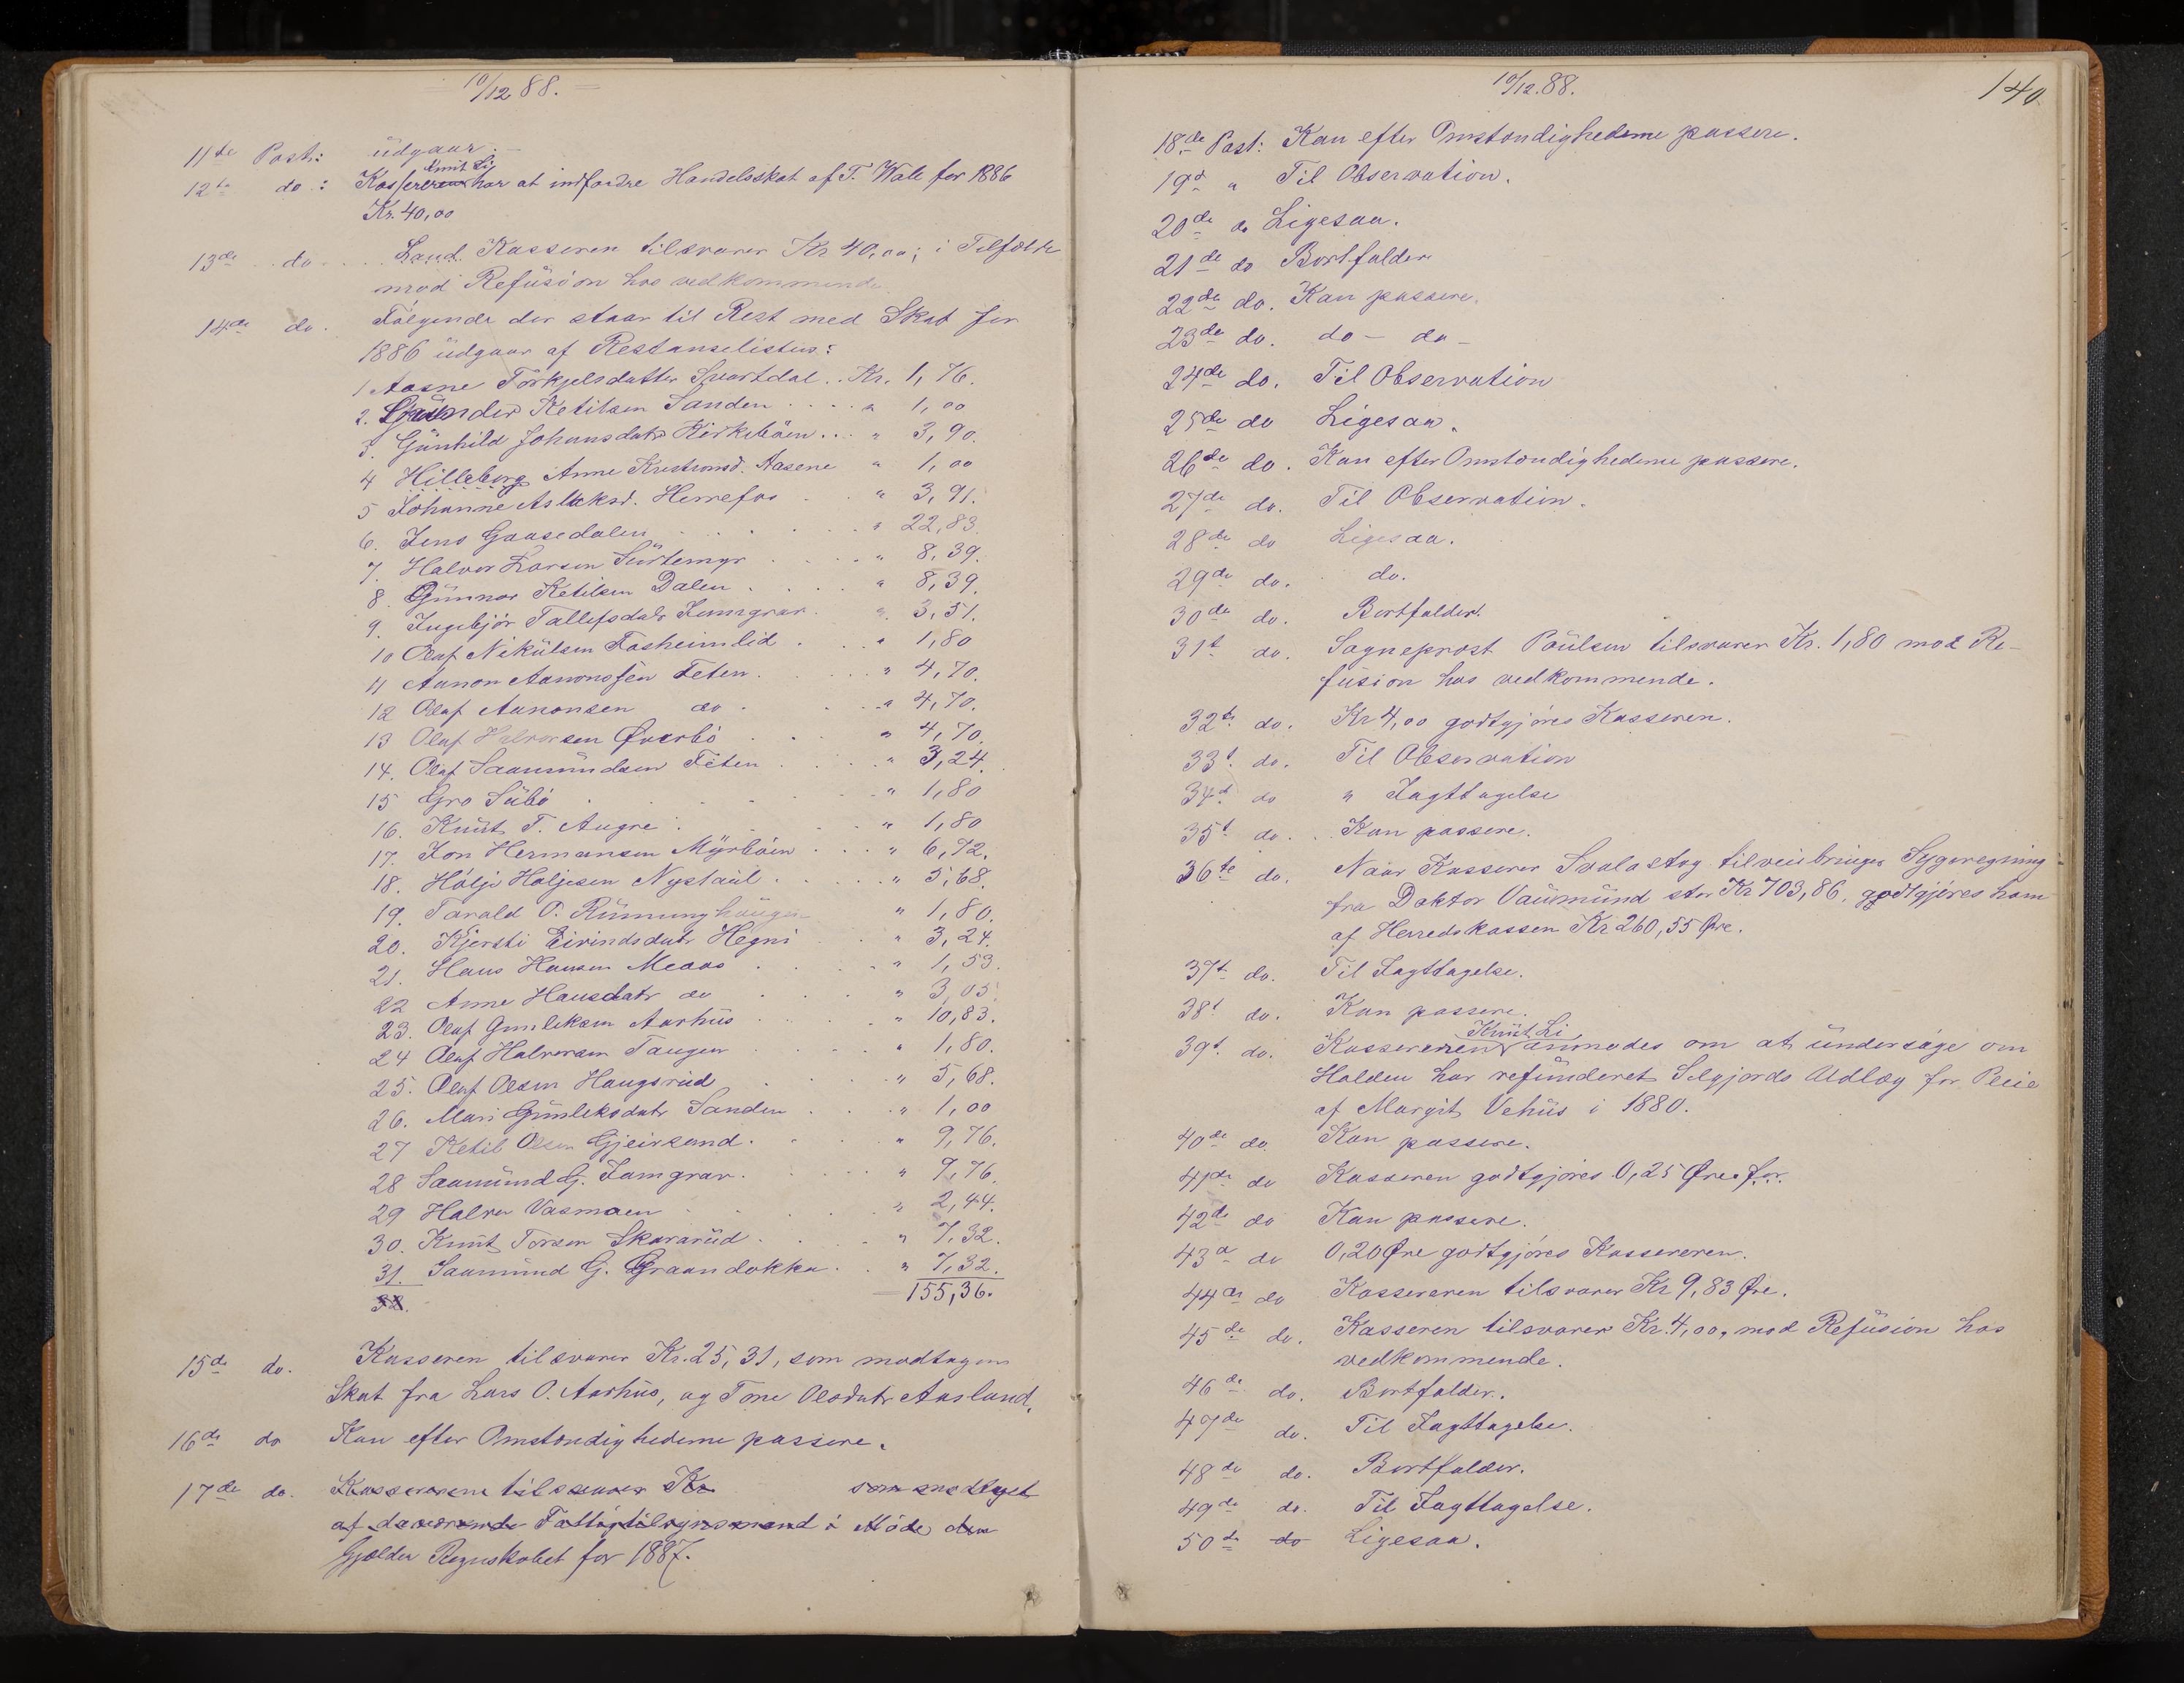 10/12 88.
11te Post: udgaar. –
Knut Li
12te do: Kassereren har at indfordre Handelsskat af T. Wale for 1886
Kr. 40,00
13de do. Land. Kasseren tilsvarer Kr 40,00; i Tilfælde
mod Refusion hos vedkommende.
14de do. Følgende der staar til Rest med Skat for
1886 udgaar af Restanselisten:
1 Aasne Torkjelsdatter Svartdal .. Kr. 1,76.
2. Gunder Ketilsen Sanden . . . . " 1,00
3. Gunhild Johansdatr Kirkebøen . . . " 3,90.
4 Hilleborg Anne Kristensd. Aasene " 1,00
5 Johanne Aslaksd. Herrefos . . " 3,91.
6. Jens Gaasedalen . . . . . " 22,83.
7. Halvor Larsen Surtemyr . . . . " 8,39.
8. Gunnar Ketilsen Dalen . . . . . " 8,39.
9. Ingebjør Tallefsdatr Jamgrav . " 3,51.
10 Olaf Nikulsen Fosheimlid . . . " 1,80
11 Aanon Aanonsen Teten . . . . " 4,70.
12 Olaf Aanonsen do . . . . " 4,70.
13 Olaf Halvorsen Øverbø . . . " 4,70.
14. Olaf Saamundsen Teten . . . . " 3,24.
15 Gro Subø . . . . . " 1,80
16. Knut T. Augre . . . . " 1,80
17. Jon Hermansen Myrbøen . . . . " 6,72.
18. Hølje Holjesen Nystaul . . . . . " 5,68.
19. Tarald O. Rumunghaugen " 1,80.
20. Kjersti Eivindsdatr Hegni . . " 3,24.
21. Hans Hansen Meaas . . . . " 1,53.
22 Anne Hansdatr do . . . " 3,05.
23. Olaf Gunleksen Aarhus . . . . " 10,83.
24 Olaf Halvorsen Taugen . . " 1,80.
25. Olaf Olsen Haugsrud . . . " 5,68.
26. Mari Gunleksdatr Sanden . . . " 1,00
27 Ketil Olsen Gjeirsand . . . " 9,76.
28 Saamund G. Jamgrav . . . . " 9,76.
29 Halvor Vasmoen . . . . " 2,44.
30. Knut Torsen Skararud . . . " 7,32.
31. Saamund G. Graandokka . . " 7,32.
32. 155,36.
15de do. Kasseren tilsvarer Kr. 25,31, som modtagen
Skat fra Lars O. Aarhus, og Tone Olsdatr Aasland.
16de do Kan efter Omstændighederne passere.
17de do. Kassereren tilsvarer Kr som modtaget
af daværende Fattigtilsynsmand i Møde den
Gjælder Regnskabet for 1887.
10/12. 88.
140.
18de Post: Kan efter Omstændighederne passere.
19d " Til Observation.
20de do Ligesaa.
21de do Bortfalder
22de do. Kan passere.
23de do. do – do –
24de do. Til Observation
25de do Ligesaa.
26de do. Kan efter Omstændighederne passere.
27de do. Til Observation.
28de do Ligesaa.
29de do. do.
30de do. Bortfalder.
31t do. Sogneprost Poulsen tilsvarer Kr. 1,80 mod Re-
fusion hos vedkommende.
32te do. Kr 4,00 godtgjøres Kasseren.
33t do. Til Observation
34d do " Jagttagelse
35t do. Kan passere.
36te do. Naar Kasserer Svalastog tilveiebringer Sygeregning
fra Doktor Vaumund stor Kr 703,86, godtgjøres ham
af Herredskassen Kr 260,55 Øre.
37t do. Til Jagttagelse.
38t do. Kan passere.
Knut Li
39t do. Kassereren anmodes om at undersøge om
Holden har refunderet Selgjords Udlæg for Pleie
af Margit Vehus i 1880.
40de do. Kan passere.
41de do Kasseren godtgjøres 0,25 Øre. for.
42de do Kan passere.
43d do 0,20 Øre godtgjøres Kassereren.
44de do Kassereren tilsvarer Kr 9,83 Øre.
45de do. Kasseren tilsvarer Kr. 4,00, mod Refusion hos
vedkommende.
46de do. Bortfalder.
47de do. Til Jagttagelse.
48de do. Bortfalder.
49de do. Til Jagttagelse.
50de do Ligesaa.